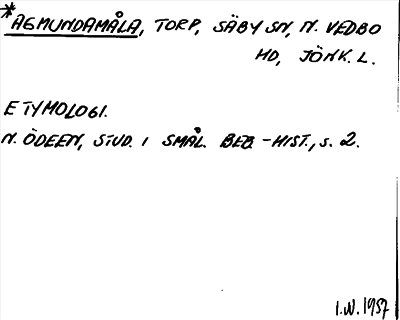 *AGMUNDAMÅLA, TORP, SÄBY SN, N. VEDBO
HD, JÖNK. L.
ETYMOLOGI.
N. ÖDEEN, STUD. I SMÅL. BEB.-HIST., s. 2.
I.W. 1957